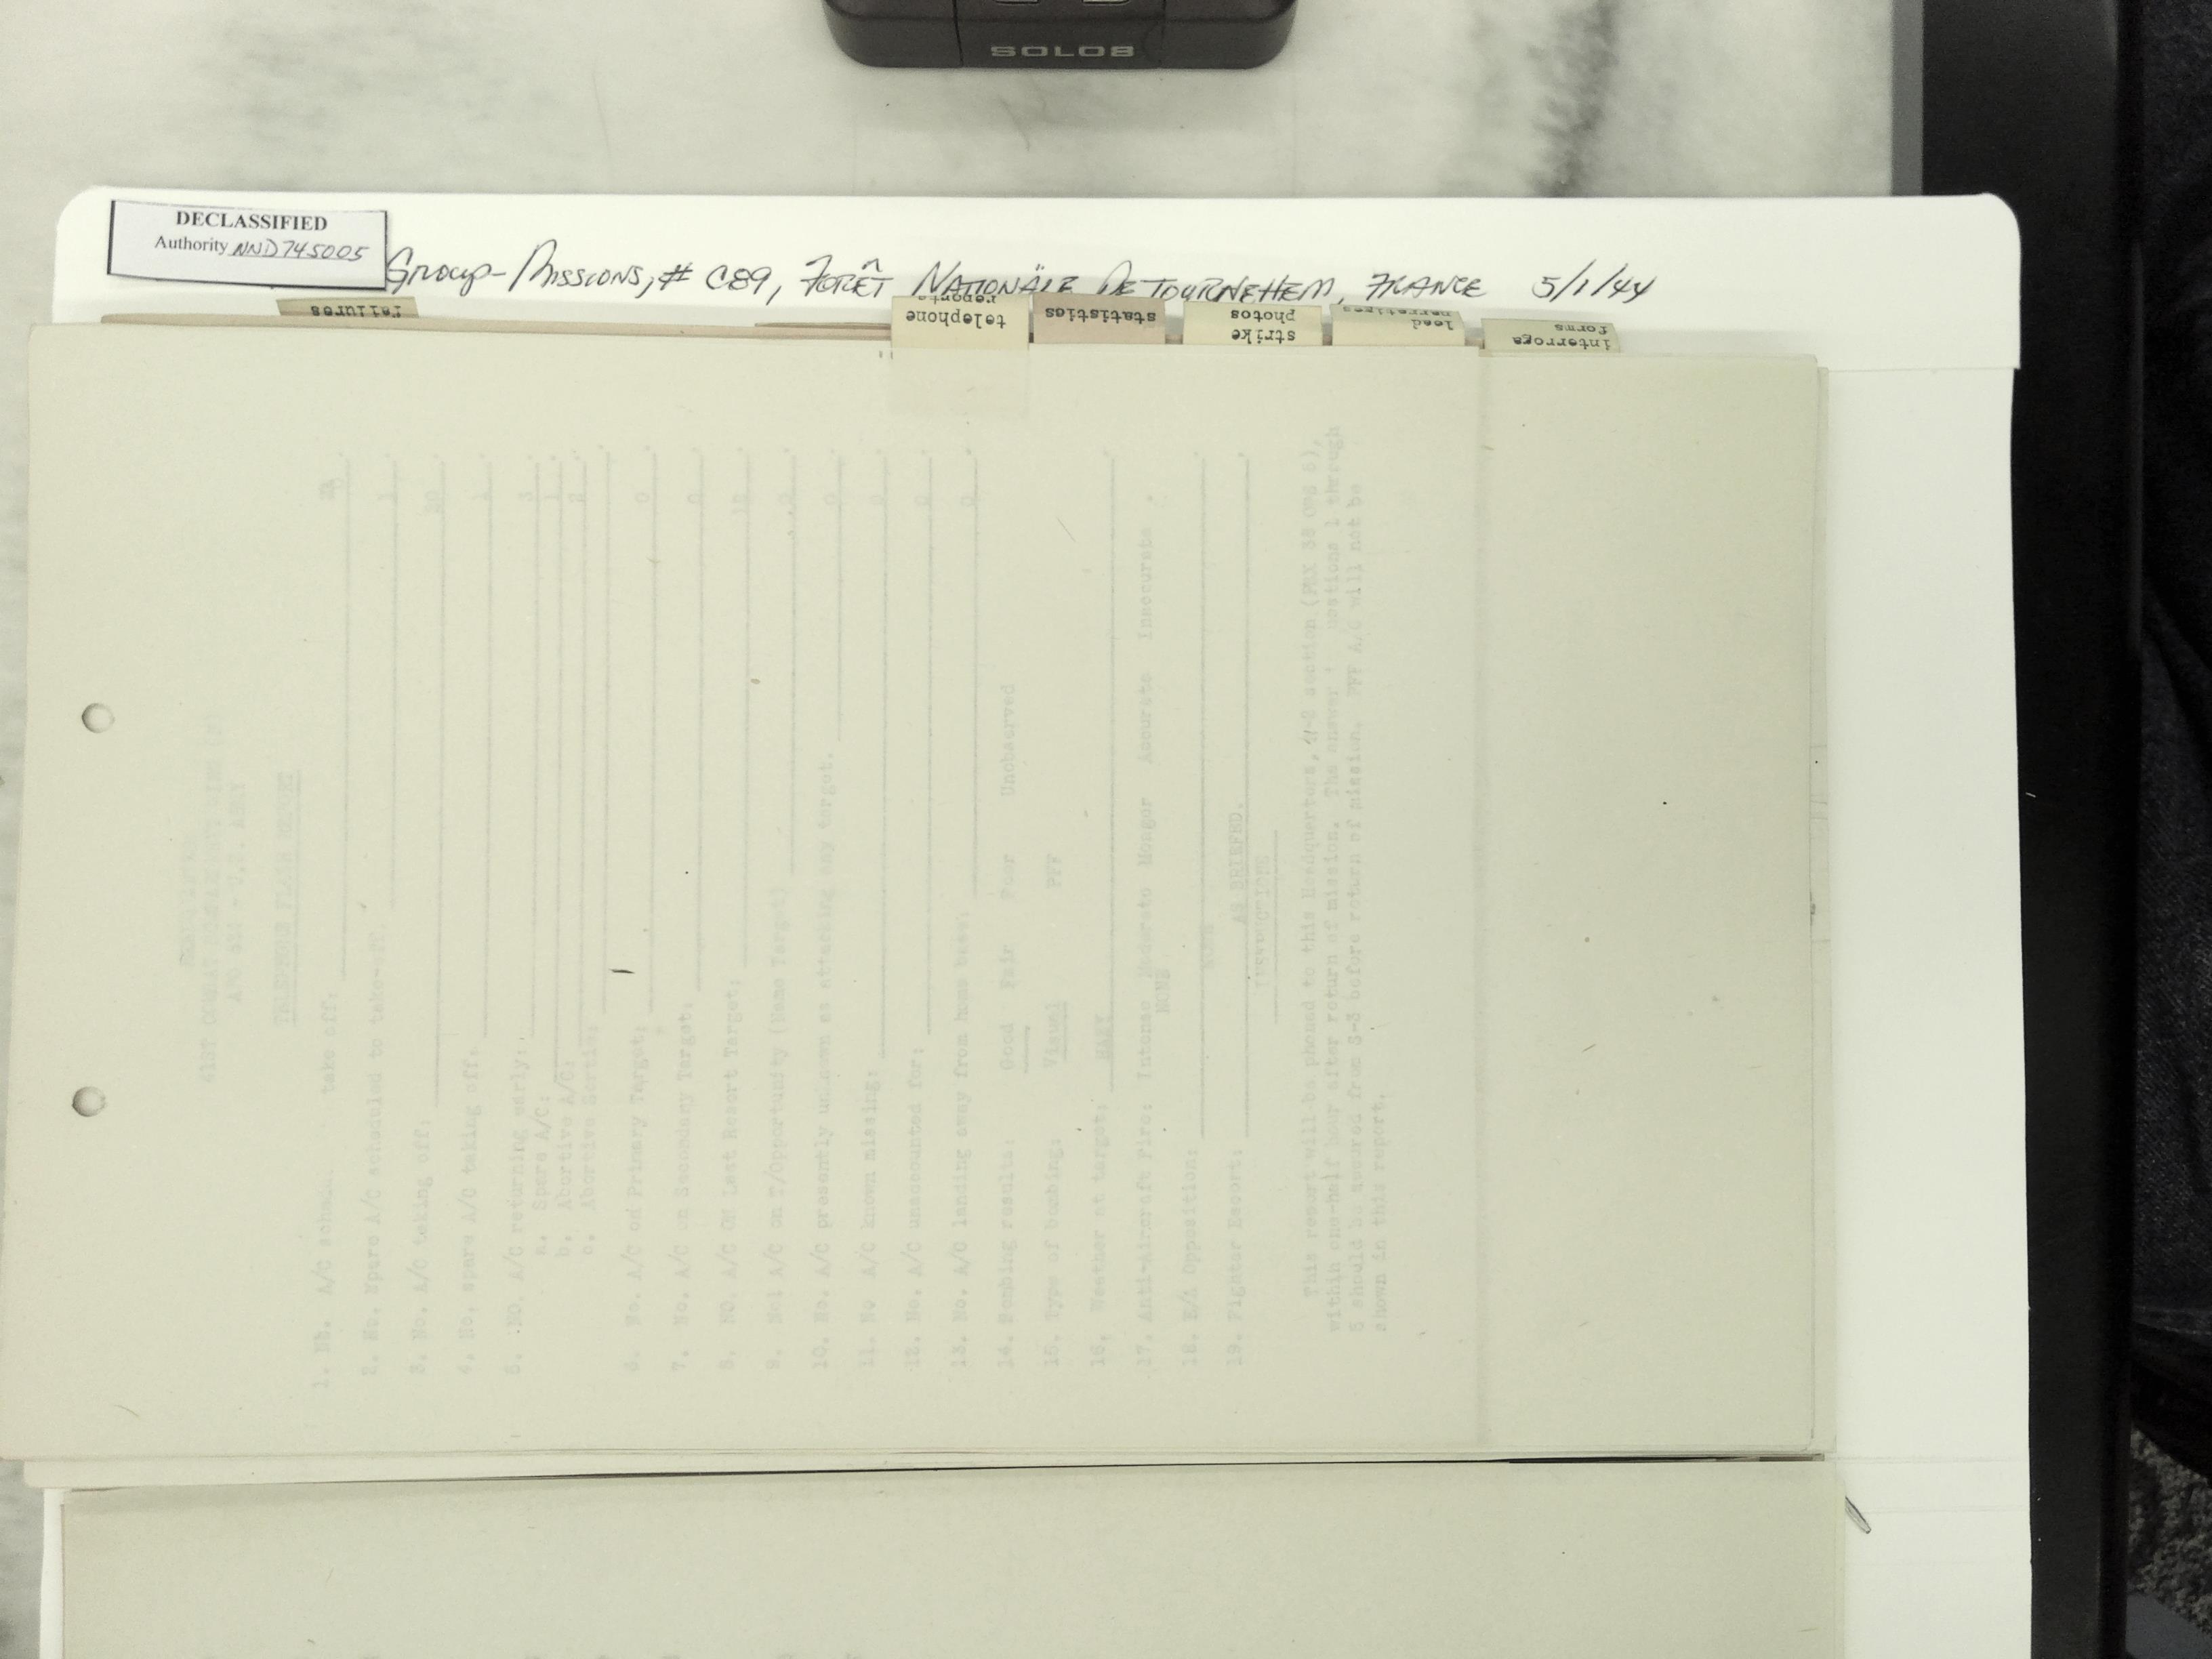 SOLO8
DECLASSIFIED
Authority NND745005
Group-Missions, # C89, Forêt Nationale De Tournehem, France 5/1/44
failures
telephone
reports
statistics
strike
photos
lead
narratives
interroga
forms
41ST COMBAT
U.S. ARMY
TELEPHONE FLASH REPORT
1. No. A/C take off:
2. No. Spare A/C scheduled to take-off. 1
3. No. A/C taking off: 20
4. No. spare A/C taking off. 1
5. NO. A/C returning early: 3
a. Spare A/C: 1
b. Abortive A/C: 2
c. Abortive Sortie:
6. No. A/C on Primary Target: 0
7. No. A/C on Secondary Target: 0
8. NO. A/C ON Last Resort Target: 18
9. No. A/C on T/Opportunity (Name Target) 0
10. No. A/C presently unknown as attacking any target. 0
11. No A/C known missing: 0
12. No. A/C unaccounted for: 0
13. No. A/C landing away from home base: 0
14. Bombing results: Good Fair Poor Unobserved
15. Type of bombing: Visual PFF
16. Weather at target: HAZY
17. Anti-Aircraft Fire: Intense Moderate Meager Accurate Inaccurate.
NONE
18. E/A Opposition: NONE
19. Fighter Escort: AS BRIEFED.
INSTRUCTIONS
This report will be phoned to this Headquarters, A-2 section
within one-half hour after return of mission. The answer questions 1 through
5 should be secured from S-3 before return of mission. PFF A/C will not be
shown in this report.